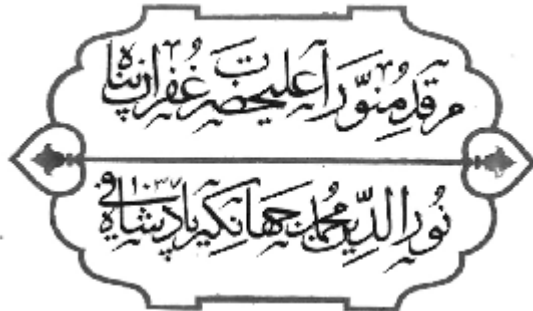 مرقدِ مُنوّر اعلیحضرت غُفران پناہ
نُور الدّین محمد جہانگیر بادشاہ فی ١٠٣٧